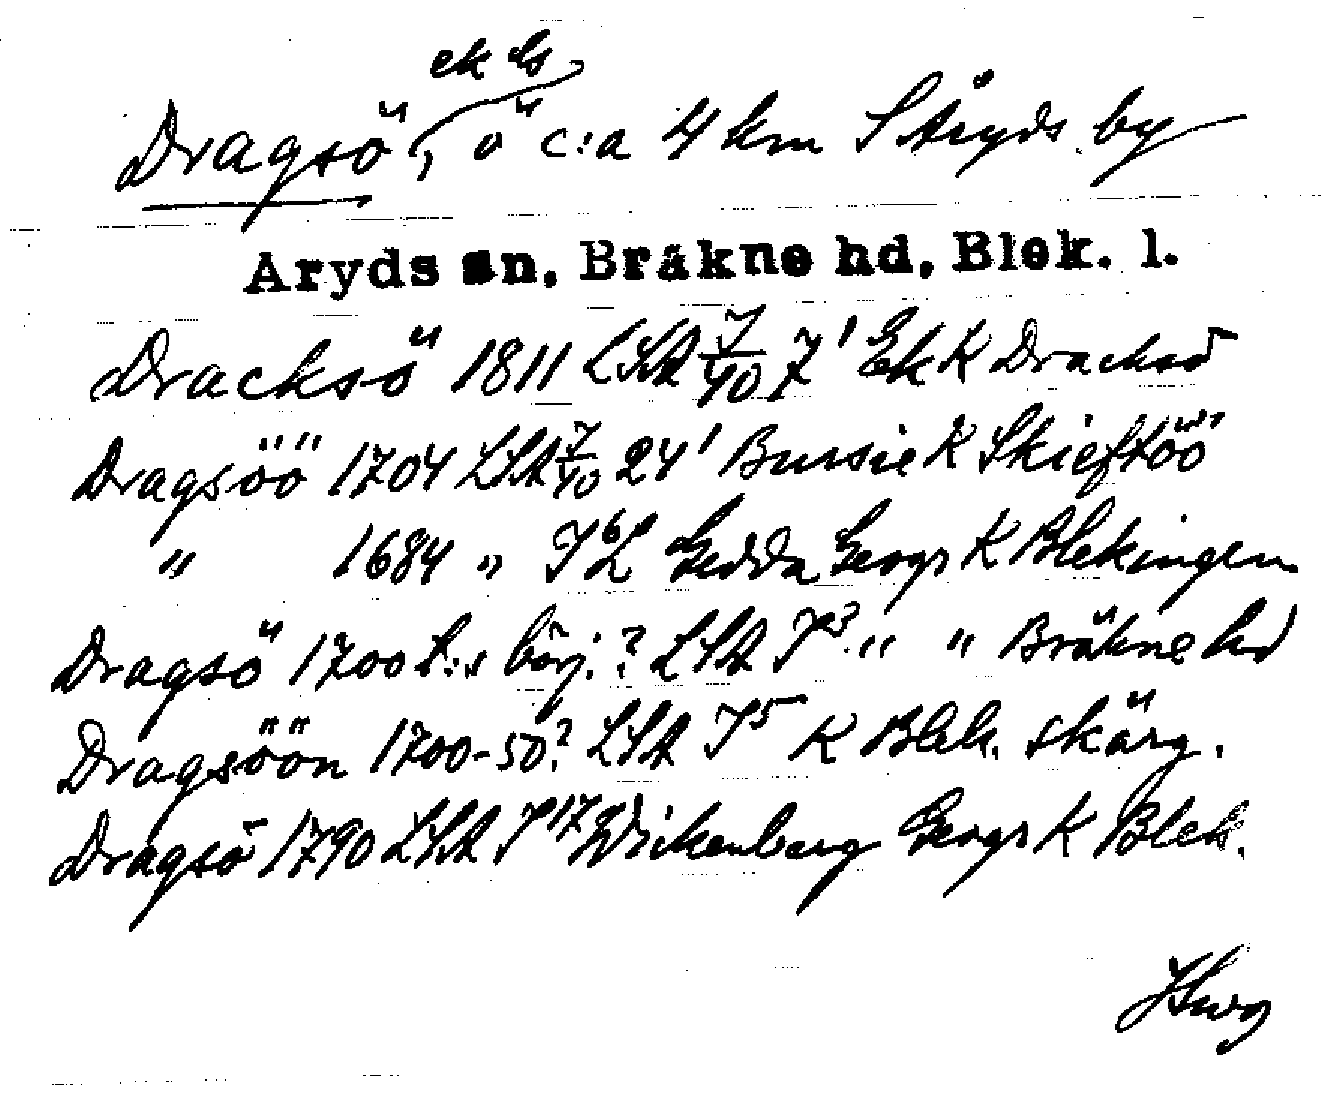 ek ls
Dragsö, ö c:a 4 km S Åryds by
Åryds sn, Bräkne hd, Blek. l.
Dracksö 1811 LSA I/40 7¹ Ek K Dracksö
Dragsöö 1704 LSA I/40 24¹ Bussie K Skieftöö
" 1684 " I⁶L Gedda Geogr K Blekingen
Dragsö 1700 t:s börj.? LSA I³ " " Bräkne hd
Dragsöön 1700-50? LSA I⁵ K Blek. skärg.
Dragsö 1790 LSA I¹⁷ Wickenberg Geogr K Blek.